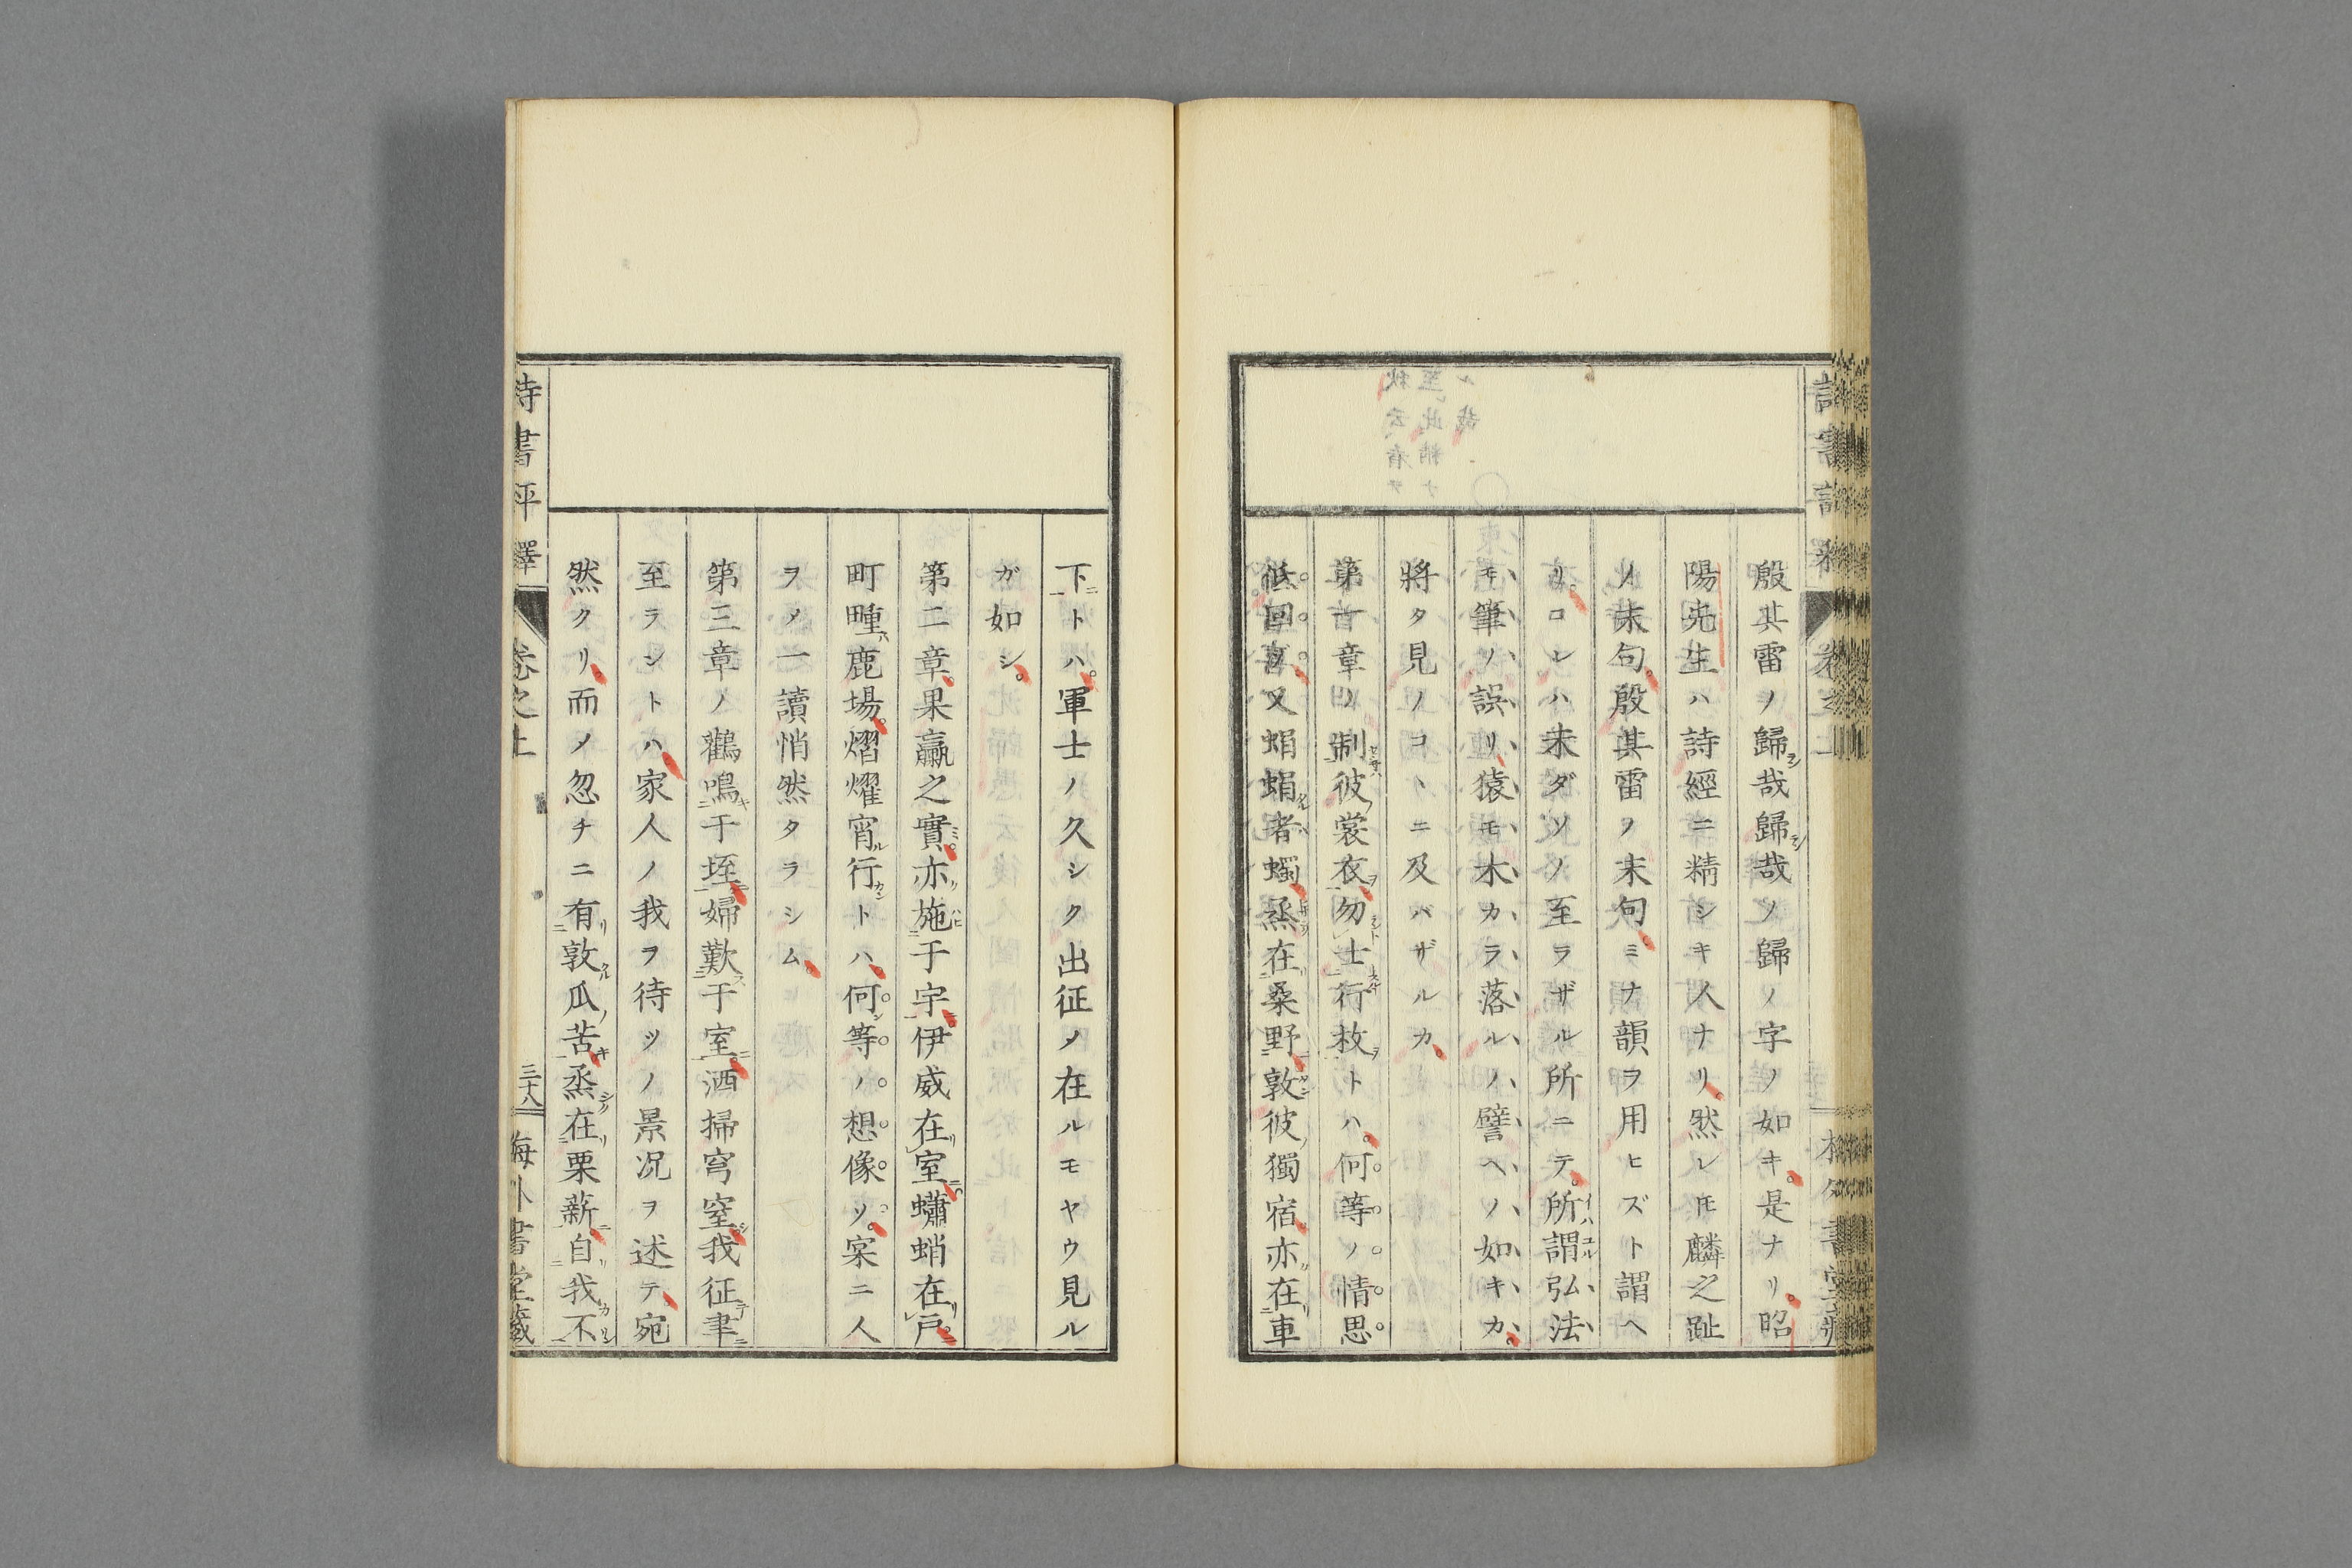 殷其雷ノ歸哉歸哉ノ歸ノ字ノ如キ是ナリ昭
陽先生ハ詩經ニ精シキ人ナリ然レ𪜈麟之趾
ノ末句殷其雷ノ末句ミナ韻ヲ用ヒズト謂ヘ
リコレハ未ダソノ至ラザル所ニテ所謂弘法
モ筆ノ誤リ猿モ木カラ落ルノ譬ヘノ如キカ
將タ見ノコヽニ及バザルカ
第一章ノ制彼裳衣勿士行枚トハ何等ノ情思
低回又蜎蜎者蠋烝在桑野敦彼獨宿亦在車
下トハ軍士ノ久シク出征メ在ルモヤウ見ル
ガ如シ
第二章果臝之實亦施于宇伊威在室蠨蛸在戶
町畽鹿場熠燿宵行トハ何等ノ想像ソ寀ニ人
ヲメ一讀悄然タラシム
第三章ノ鸛鳴于垤婦歎于室洒掃穹窒我征聿
至ラシトハ家人ノ我ヲ待ツノ景況ヲ述テ宛
然クリ而メ忽チニ有敦瓜苦烝在栗薪自我不
卷之上
三十八
海外書堂藏